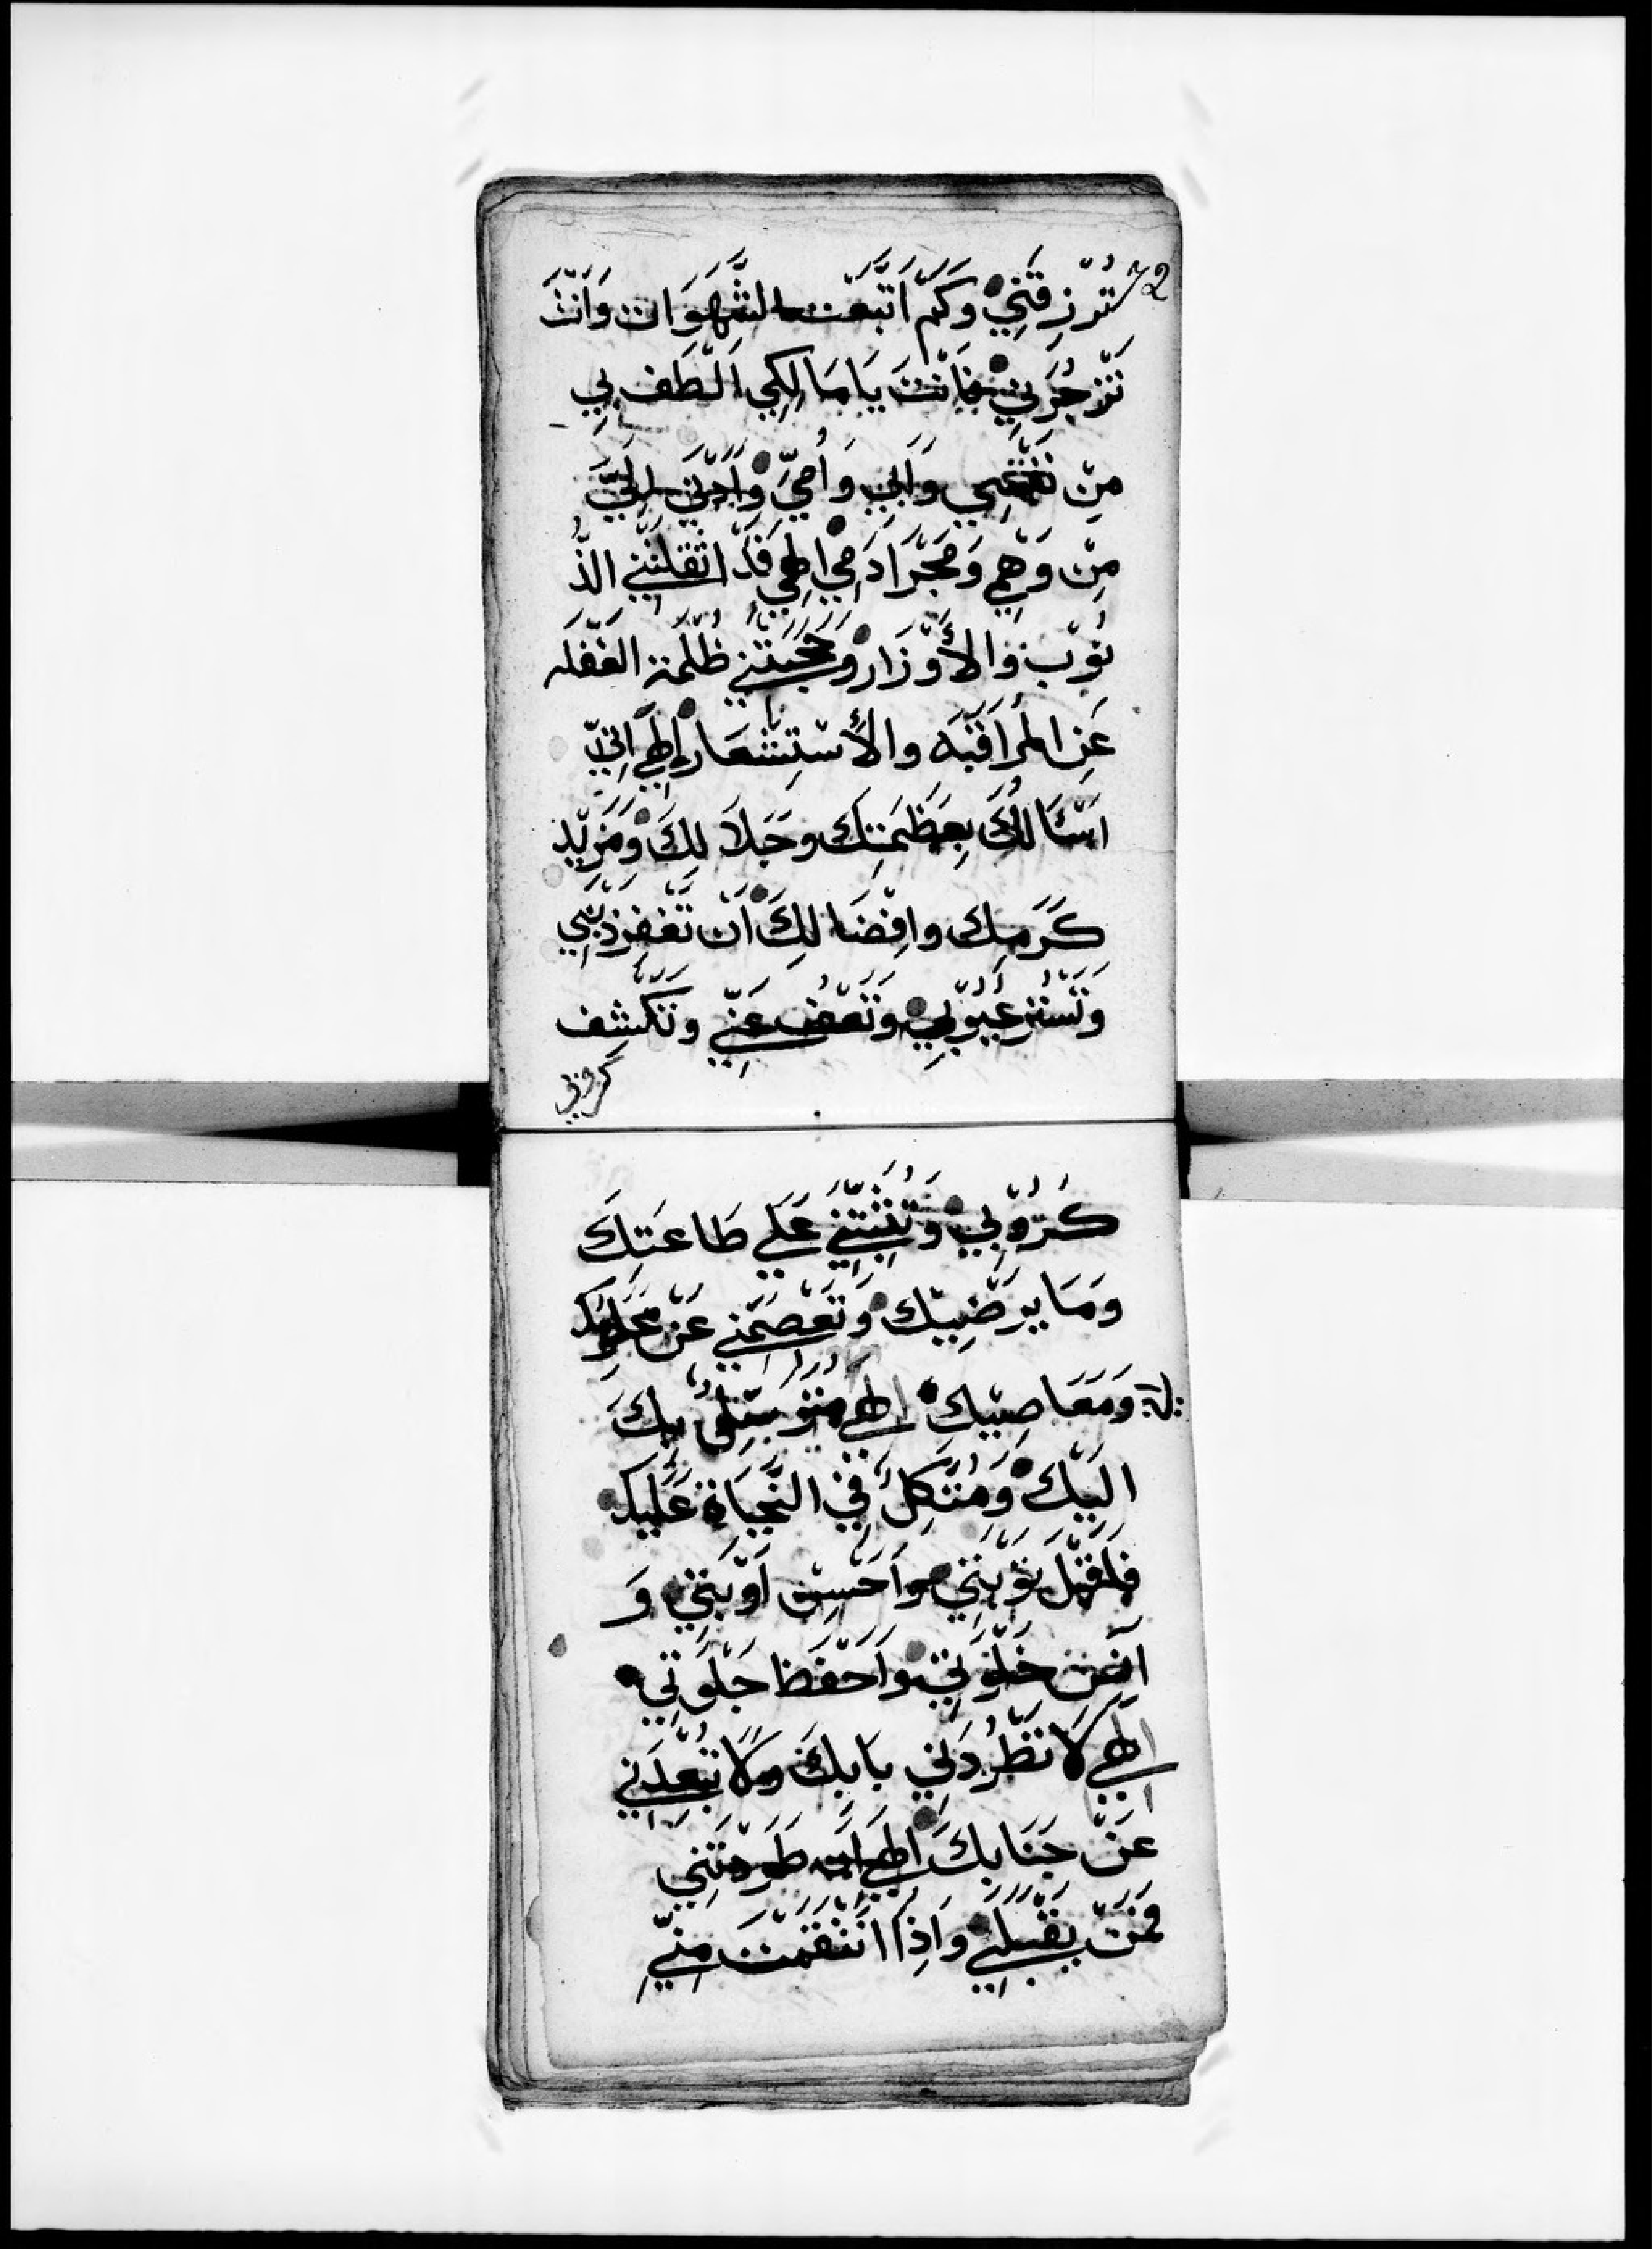 72
تُرْزِقَنِيْ وَكَمْ اَتَّبَعْت الشَّهَوَات وَاَنْتَ
تَزْجُرَنِيْ فَاَنْتَ يَا مَالِكِي اَلْطَف بِي
مِنْ نَفْسِي وَاَبِي وَاُمِّيْ وَاَدْنَى اِلَيَّ
مِنْ وَهْمِي وَمَجْرَا دَمِيْ اِلهِي قَدْ اثْقَلَتْنِي الذُّ
نُوْب وَالأَوْزَارْ وَحَجَبَتْنِي ظُلْمَة الغَفْلَه
عَنِ المُرَاقَبَه والأَسْتِشْعَارْ اِلهِي اِنِّيْ
اَسْئَالُكَ بِعَظَمَتِكَ وجَلَالِكَ وَمَزِيْدِ
كَرَمِكَ وافْضَالِكَ اَنْ تَغْفِرْ ذَنْبِي
وَتَسْتُرْ عُيُوْبِيْ وَتَعْفُ عَنِّي وتَكْشِف
كروبي
كُرُوْبِيْ وَتُثَبِّتْنِي عَلَي طَاعَتِكَ
وَمَا يَرْضِيْكَ وَتَعْصِمْنِي عَنْ
وَمَعَاصِيْكَ اِلهِي مُتَوَسِّلُ بِكَ
اِلَيْكَ وَمُتَّكِلُ فِيْ النَّجَاة عَلَيْكَ
فَاَقْبَلْ تَوْبَتِي وَاَحْسِنْ اَوْبَتِيْ وَ
آنِسْ خَلْوَتِيْ وَاَحْفَظ جَلْوَتِي
اِلهِي لَا تَطْرُدَنِي بَابِكَ وَلَا تُبْعِدَنِي
عَنْ جَنَابِكَ اِلهِي طَرَدْتَنِي
فَمَنْ يَقْبَلُنِي وَاِذَا اَنْتَقَمْتَ مِنِّي